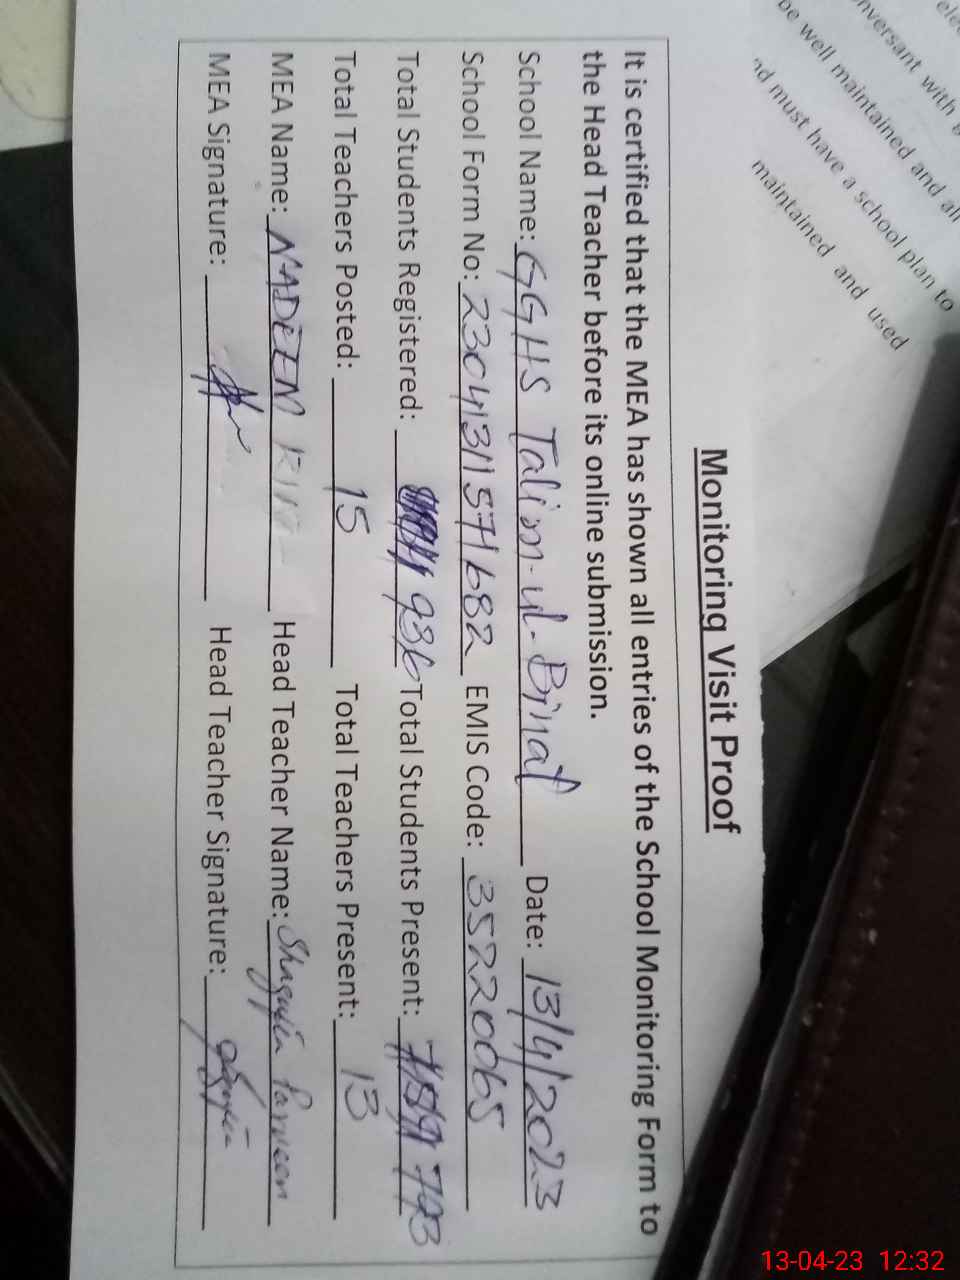 elec
nversant with g
be well maintained and all
nd must have a school plan to
maintained and used
Monitoring Visit Proof
It is certified that the MEA has shown all entries of the School Monitoring Form to
the Head Teacher before its online submission.
School Name: GGHS Talim-ul-Binat Date: 13/4/2023
School Form No: 23041311571682 EMIS Code: 35220065
Total Students Registered: 936 Total Students Present: 793
Total Teachers Posted: 15 Total Teachers Present: 13
MEA Name: NADEEM Head Teacher Name: Shagufta Parveen
MEA Signature: Head Teacher Signature:
13-04-23 12:32